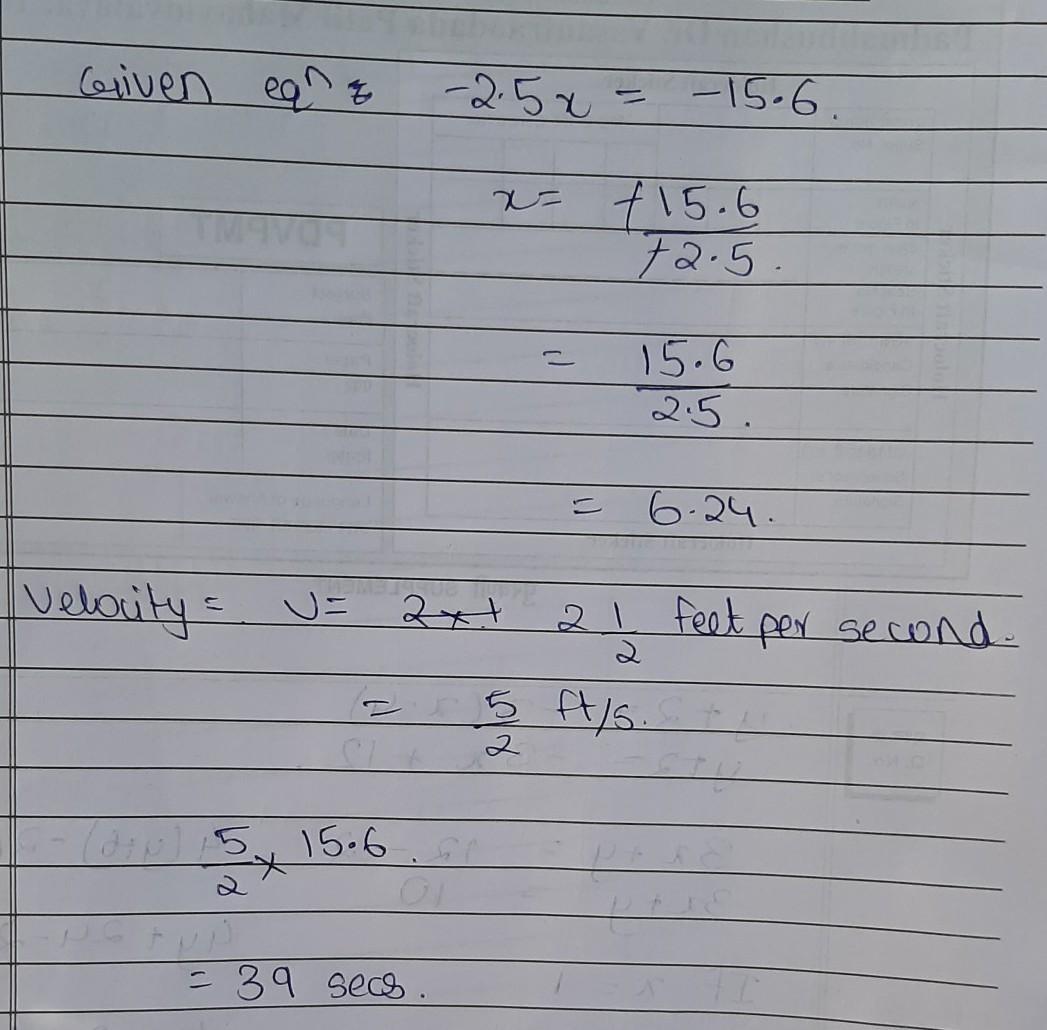 Given eqⁿ : -2.5x = -15.6.
x = +15.6
+2.5.
= 15.6
2.5.
= 6.24.
Velocity = v = 2 1/2 feet per second.
= 5/2 ft/s.
5/2 × 15.6.
= 39 secs.